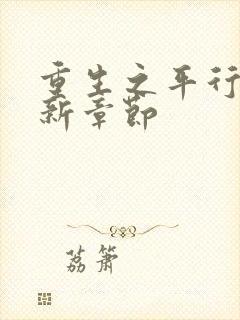 重生之平行
新章节
荔箫